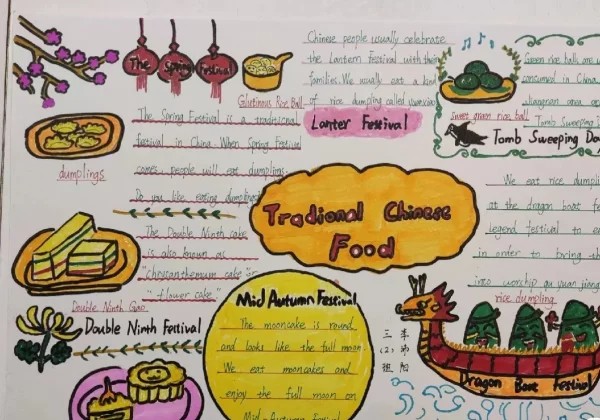 The Spring Festival
Glutinous Rice Ball
Chinese people usually celebrate
the Lantern Festival with their
families. We usually eat a kind
of rice dumping called
Lanter Festival
sweet green rice ball
Green rice balls are
consumed in China
jiangnan area
Tomb Sweeping
Tomb Sweeping Da
dumplings
The Spring Festival is a traditional
festival in China. When Spring Festival
comes, people will eat dumplings.
Do you like eating dumplings
Tradional Chinese
Food
We eat rice dumpli
at the dragon boat fe
legend festival to
in order to
into worship qu yuan
rice dumpling
The Double Ninth cake
is also known as
"chrysanthemum cake" or
"flower cake"
Double Ninth Gao
Double Ninth Festival
Mid Autumn Festival
The mooncake is round
and looks like the full moon
We eat mooncakes and
enjoy the full moon on
Mid-Autumn
三(2)班
李
Dragon Boat Festival